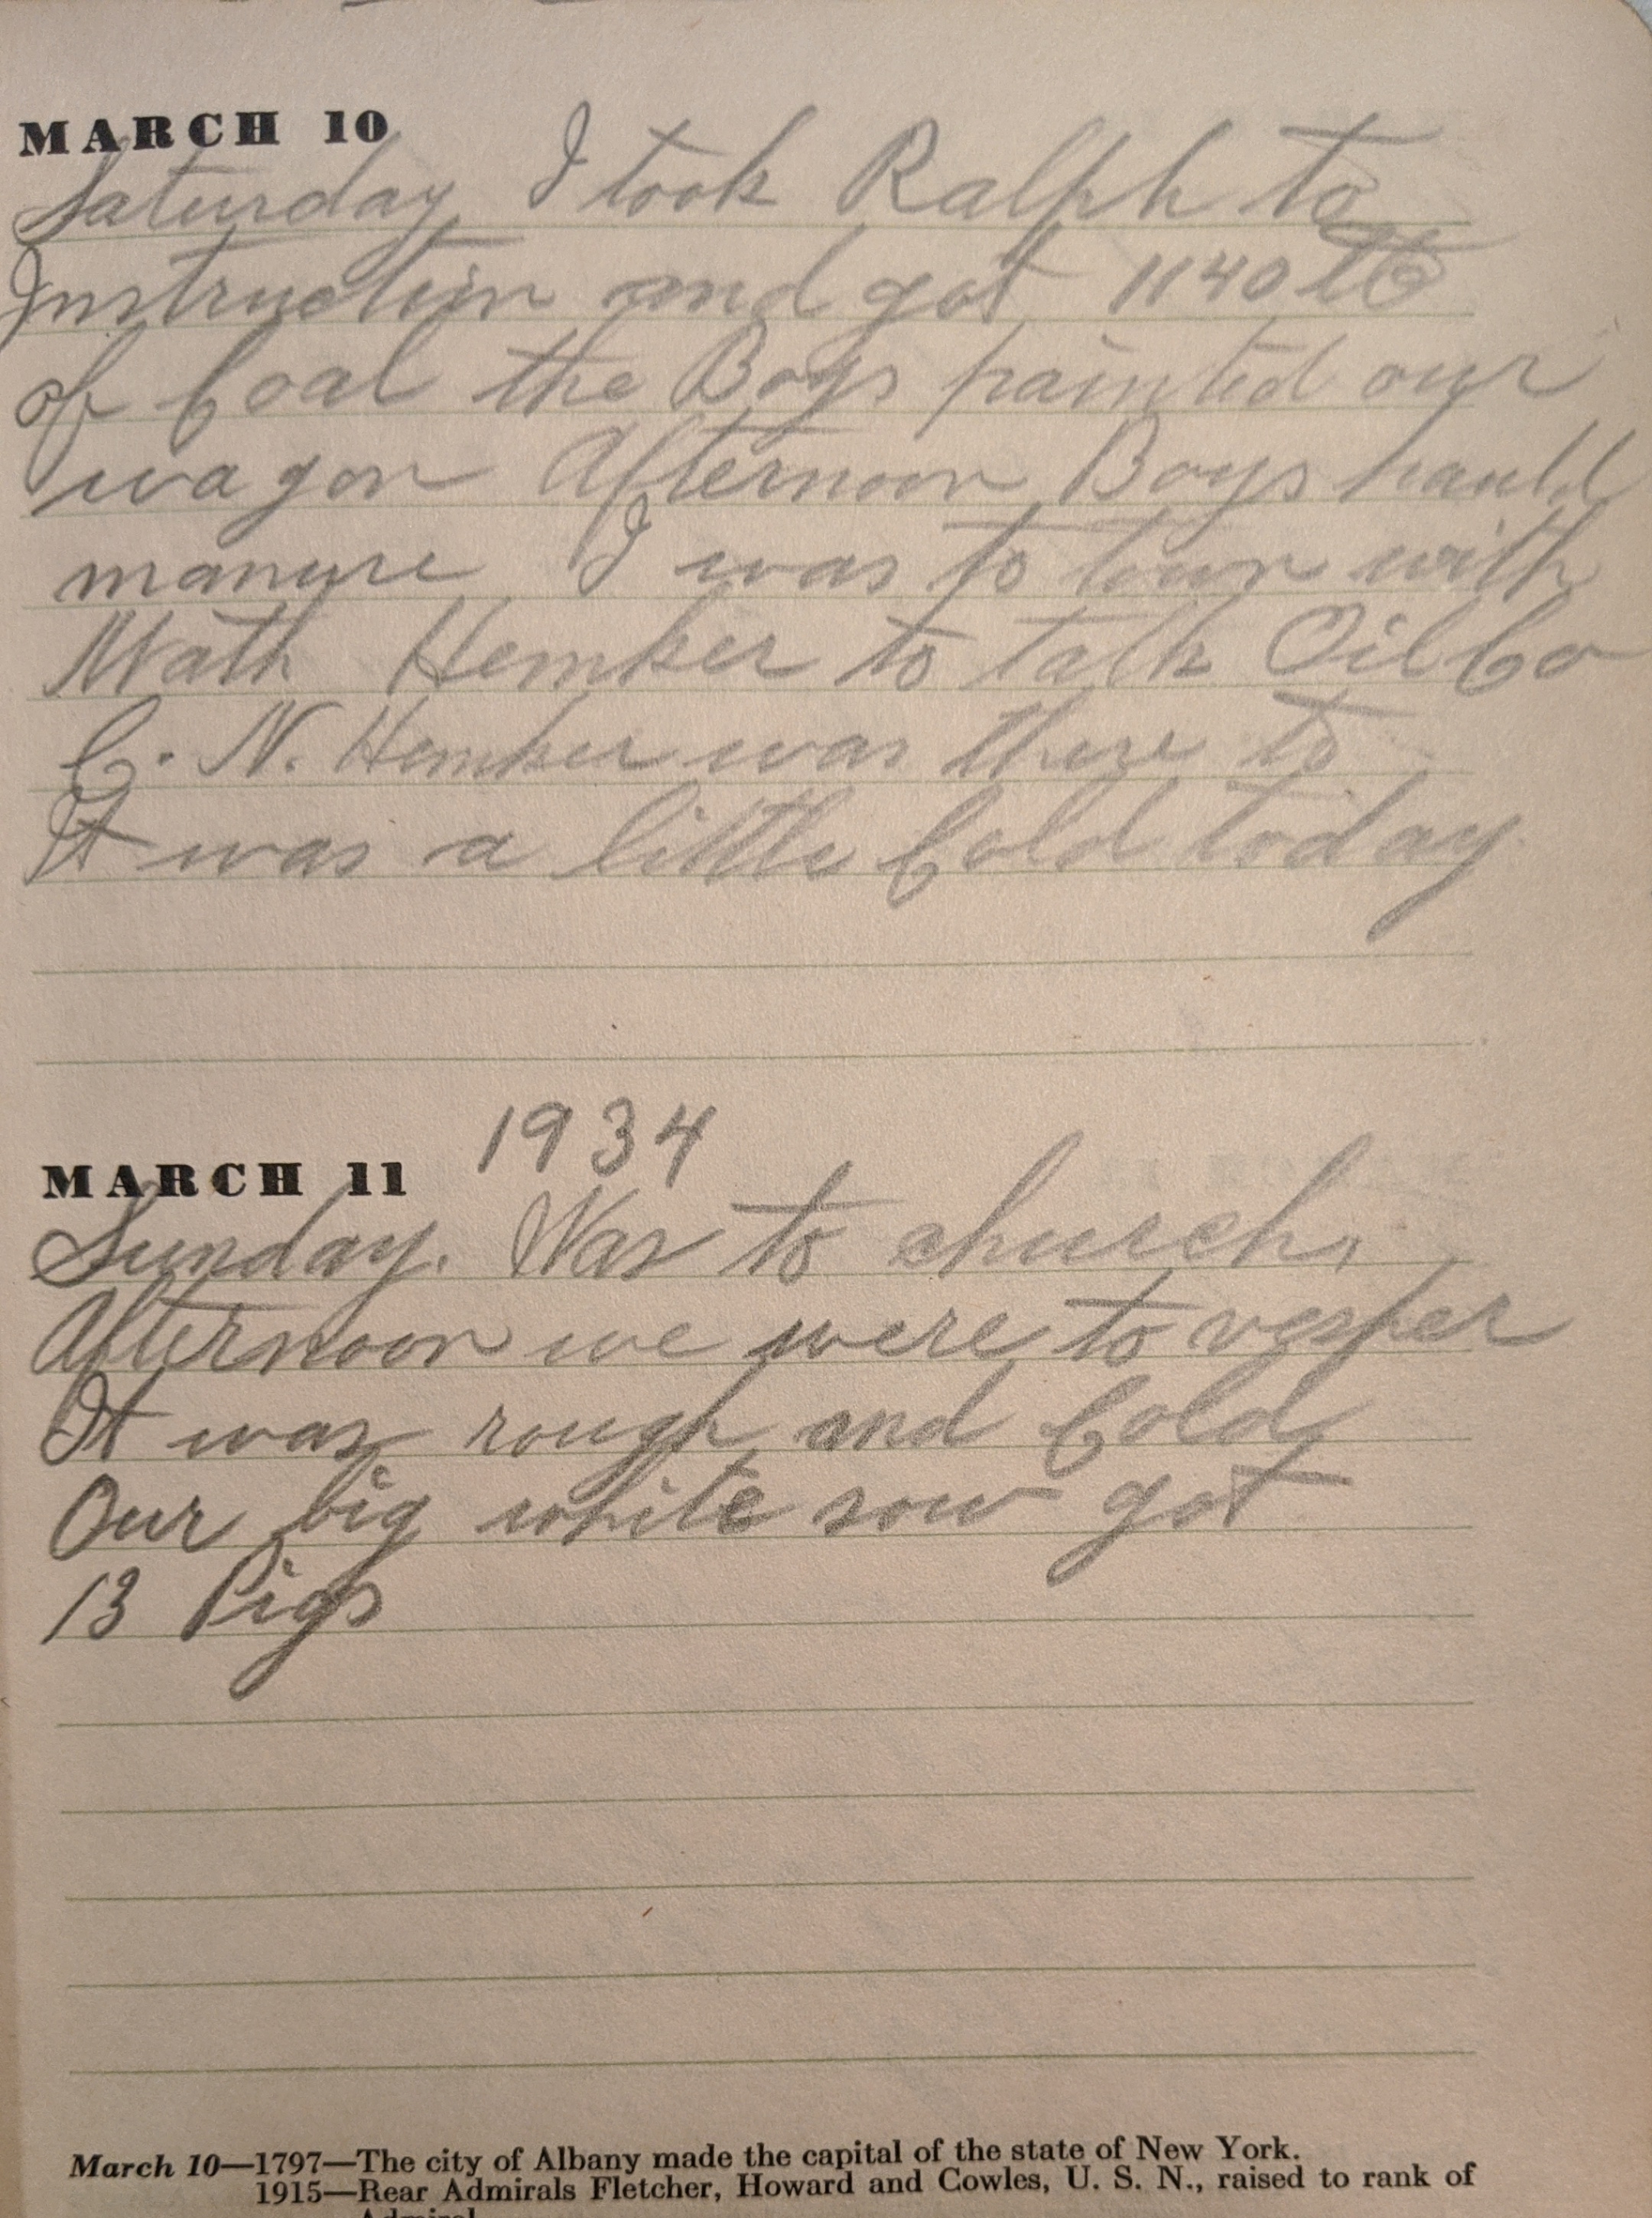 MARCH 10
Saturday I took Ralph to
Instruction and got 1140 lb
of Coal the Boys painted our
wagon Afternoon Boys hauld
manure I was to town with
Math Hemker to talk Oil Co
C. N. Hemker was there to
It was a little Cold today
1934
MARCH 11
Sunday. Was to church,
Afternoon we were to vesper
It was rough and Cold
Our big white sow got
13 Pigs
March 10—1797—The city of Albany made the capital of the state of New York.
1915—Rear Admirals Fletcher, Howard and Cowles, U. S. N., raised to rank of
Admiral